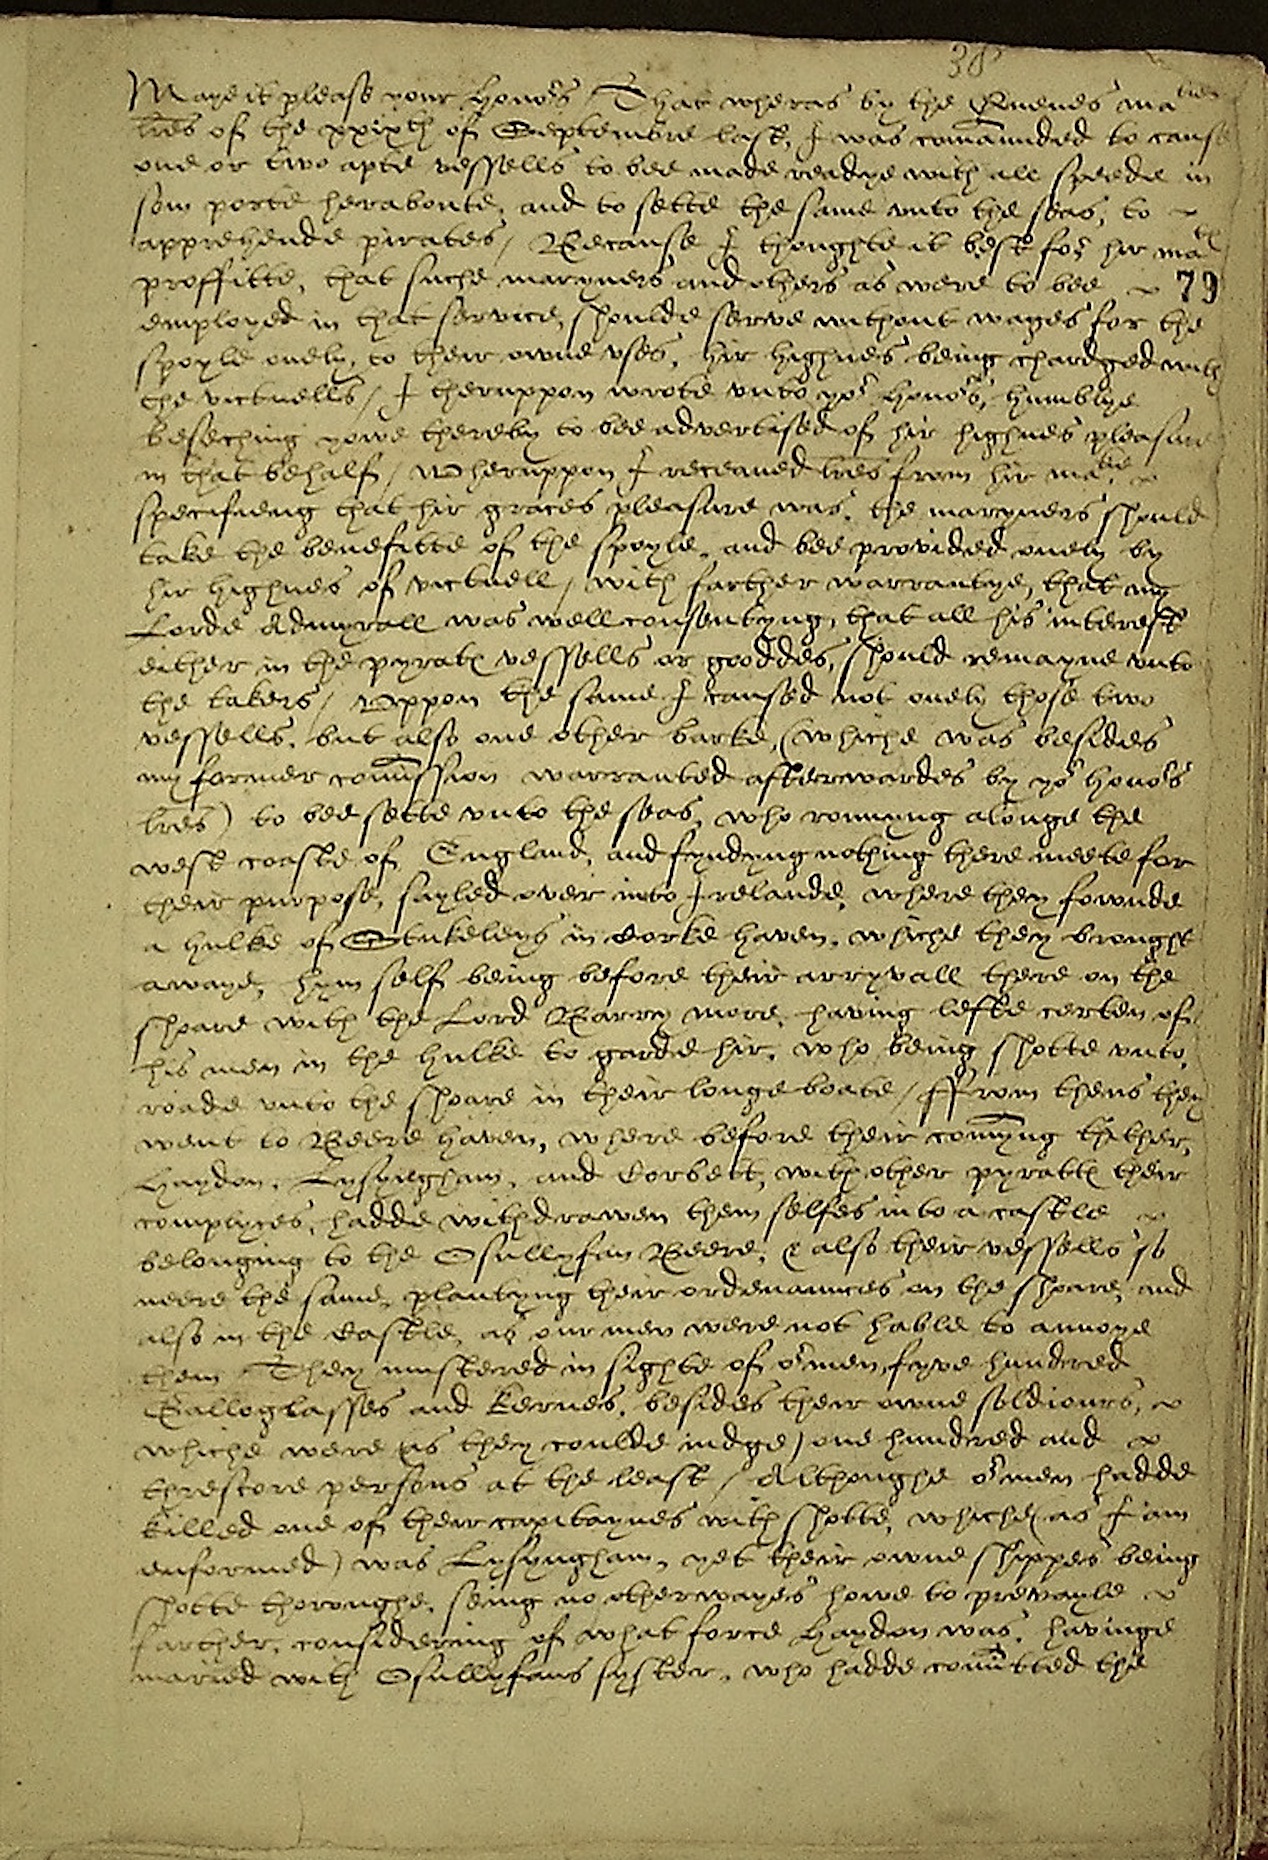 38
Maye it please your honors / That wheras by the Quenes maties
lres of the xxixth of Septembre last, I was comaunded to cause
one or two apte vessells to bee made readye with all speede in
som porte heraboute, and to sette the same vnto the seas, to
apprehende pirates / Because I thoughte it best for hir mats
proffitte, that suche maryners and others as were to bee
79
employed in that service, shoulde serve without wages for the
spoyle onely, to their owne vses, hir highnes being chardged with
the victuells / I theruppon wrote vnto yor honors, humblye
beseching yowe thereby to bee advertised of hir highnes pleasure
in that behalf / Wheruppon I receaued lres from hir matie
specifieng that hir graces pleasure was, the maryners should
take the benefitte of the spoyle, and bee provided onely by
hir highnes of victuell / with farther warrantye, that my
Lorde Admyrall was well consentyng, that all his interest
either in the pyrates vessells or gooddes, should remayne vnto
the takers / Vppon the same I caused not onely those two
vessells, but also one other barke, (whiche was besides
my former comission warranted afterwardes by yor honors
lres) to bee sette vnto the seas, who ronnyng alonge the
west coaste of England, and fyndyng nothing there meete for
their purpose, sayled over into Irelande, where they fownde
a hulke of Stukeleys in Corke haven, whiche they brought
awaye, hym self being before their arryvall there on the
shoare with the Lord Barry more, having lefte certen of
his men in the hulke to garde hir, who being shotte vnto,
roade vnto the shoare in their longe boate / ffrom thens they
went to Beere haven, where before their comyng thither,
Haydon, Lysyngham, and Corbett, with other pyrates their
complyces, hadde withdrawen them selfes into a castle
belonging to the Osullyfan Beere, & also their vessells so
neere the same, plantyng their ordenaunces on the shoare, and
also in the Castle, as our men were not hable to annoye
them / They mustered in sighte of or men, fyve hundred
Galloglasses and Kernes, besides their owne soldiours,
whiche were (as they coulde iudge) one hundred and
threscore persons at the least / Althoughe or men hadde
killed one of their capitaynes with shotte, whiche (as I am
enformed) was Lysyngham, yet their owne shippes being
shotte thoroughe, seing no otherwayes howe to prevayle
farther, considering of what force Haydon was, havinge
maried with Osullyfans syster, who hadde comitted the